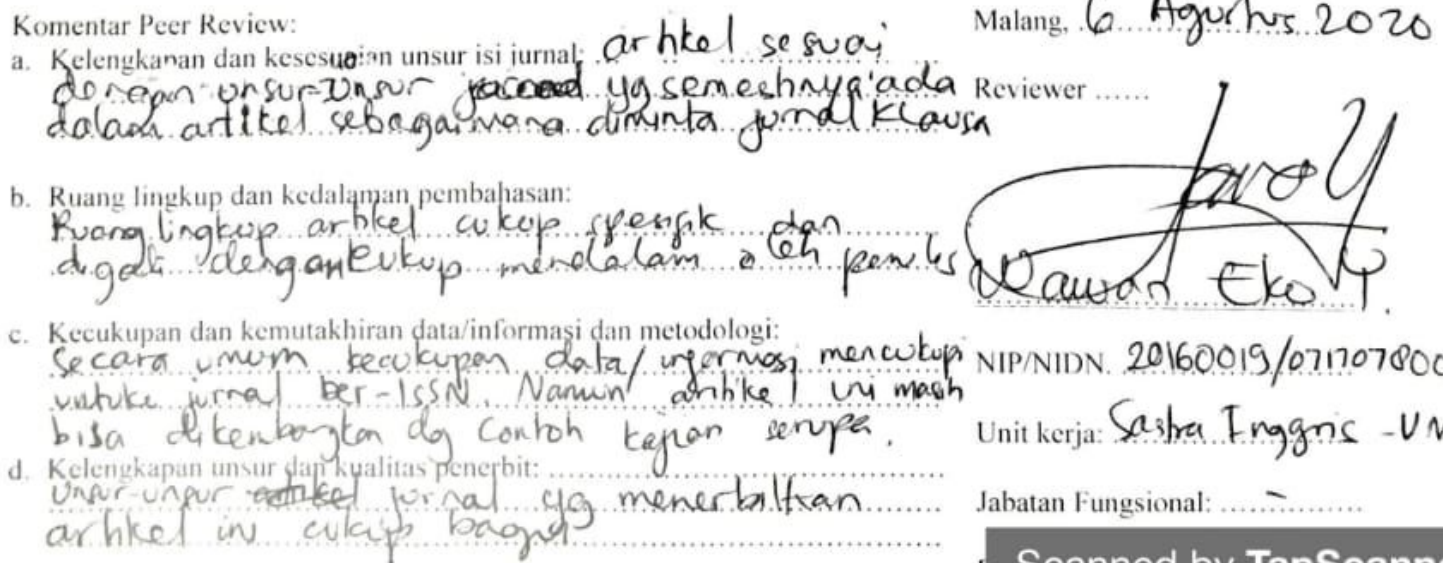 Komentar Peer Review:
a. Kelengkapan dan kesesuaian unsur isi jurnal: artikel sesuai
dengan unsur-unsur yg semestinya ada
dalam artikel sebagaimana diminta jurnal Klausa
b. Ruang lingkup dan kedalaman pembahasan:
Ruang lingkup artikel cukup spesifik dan
digali dengan cukup mendalam oleh penulis
c. Kecukupan dan kemutakhiran data/informasi dan metodologi:
Secara umum kecukupan data/informasi mencukupi
untuk jurnal ber-ISSN. Namun artikel ini masih
bisa dikembangkan dg contoh kajian serupa.
d. Kelengkapan unsur dan kualitas penerbit: ...............
Unsur-unsur jurnal yg menerbitkan
artikel ini cukup bagus
Malang, 6 Agustus 2020
Reviewer ......
Wawan Eko Y.
NIP/NIDN. 20160019/071707800
Unit kerja: Sastra Inggris - UN
Jabatan Fungsional: ..-..
Scanned by TapScanne